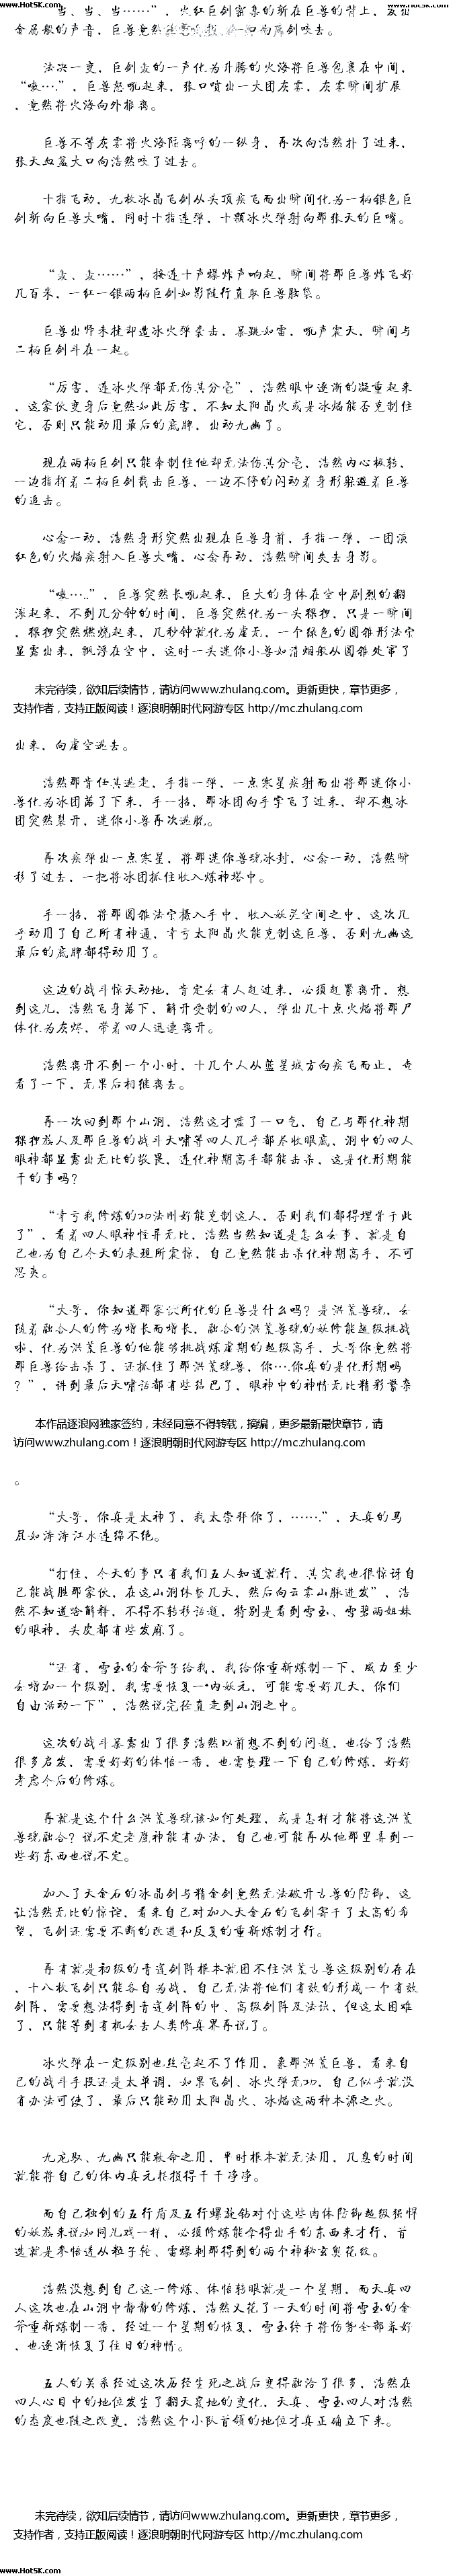 www.HotSK.com www.HotSK.com
“当、当、当……”，火红巨剑密集的斩在巨兽的背上，发出
金属般的声音，巨兽竟然
法决一变，巨剑轰的一声化为升腾的火海将巨兽包裹在中间，
“嗷….”，巨兽怒吼起来，张口喷出一大团灰雾，灰雾瞬间扩展
，竟然将火海向外推离。
巨兽不等灰雾将火海阻离呼的一纵身，再次向浩然扑了过来，
张大血盆大口向浩然咬了过去。
十指飞动，九枚冰晶飞剑从头顶疾飞而出瞬间化为一柄银色巨
剑斩向巨兽大嘴，同时十指连弹，十颗冰火弹射向那张大的巨嘴。
“轰、轰……”，接连十声爆炸声响起，瞬间将那巨兽炸飞好
几百米，一红一银两柄巨剑如影随行直取巨兽脑袋。
巨兽出师未捷却遭冰火弹袭击，暴跳如雷，吼声震天，瞬间与
二柄巨剑斗在一起。
“厉害，连冰火弹都无伤其分毫”，浩然眼中逐渐的凝重起来
，这家伙变身后竟然如此厉害，不知太阳晶火或是冰焰能否克制住
它，否则只能动用最后的底牌，出动九幽了。
现在两柄巨剑只能牵制住他却无法伤其分毫，浩然内心板转，
一边指挥着二柄巨剑截击巨兽，一边不停的闪动着身形躲避着巨兽
的追击。
心念一动，浩然身形突然出现在巨兽身前，手指一弹，一团淡
红色的火焰疾射入巨兽大嘴，心念再动，浩然瞬间失去身影。
“嗷…..”，巨兽突然长吼起来，巨大的身体在空中剧烈的翻
滚起来，不到几分钟的时间，巨兽突然化为一头猕猴，只是一瞬间
，猕猴突然燃烧起来，几秒钟就化为虚无，一个绿色的圆锥形法宝
显露出来，飘浮在空中，这时一头迷你小兽如清烟般从圆锥处窜了
未完待续，欲知后续情节，请访问www.zhulang.com。更新更快，章节更多，
支持作者，支持正版阅读！逐浪明朝时代网游专区 http://mc.zhulang.com
出来，向虚空逃去。
浩然那肯任其逃走，手指一弹，一点寒星疾射而出将那迷你小
兽化为冰团落了下来，手一招，那冰团向手掌飞了过来，却不想冰
团突然裂开，迷你小兽再次逃脱。
再次疾弹出一点寒星，将那迷你兽魂冰封，心念一动，浩然瞬
移了过去，一把将冰团抓住收入炼神塔中。
手一招，将那圆锥法宝摄入手中，收入妖灵空间之中，这次几
乎动用了自己所有神通，幸亏太阳晶火能克制这巨兽，否则九幽这
最后的底牌都得动用了。
这边的战斗惊天动地，肯定会有人赶过来，必须赶紧离开，想
到这儿，浩然飞身落下，解开受制的四人，弹出几十点火焰将那尸
体化为灰烬，带着四人迅速离开。
浩然离开不到一个小时，十几个人从蓝星城方向疾飞而止，查
看了一下，无果后相继离去。
再一次回到那个山洞，浩然这才嘘了一口气，自己与那化神期
猕猴族人及那巨兽的战斗天啸等四人几乎都尽收眼底，洞中的四人
眼神都显露出无比的敬畏，连化神期高手都能击杀，这是化形期能
干的事吗？
“幸亏我修炼的功法刚好能克制这人，否则我们都得埋骨于此
了”，看着四人眼神怪异无比，浩然当然知道是怎么会事，就是自
己也为自己今天的表现所震惊，自己竟然能击杀化神期高手，不可
思夷。
“大哥，你知道那家伙所化的巨兽是什么吗？是洪荒兽魂，会
随着融合人的修为增长而增长，融合的洪荒兽魂的妖修能越级挑战
啦，化为洪荒巨兽的他能够挑战炼虚期的超级高手，大哥你竟然将
那巨兽给击杀了，还抓住了那洪荒球兽，你….你真的是化形期吗
？”，讲到最后天啸话都有些结巴了，眼神中的神情无比精彩繁杂
本作品逐浪网独家签约，未经同意不得转载，摘编，更多最新最快章节，请
访问www.zhulang.com！逐浪明朝时代网游专区 http://mc.zhulang.com
。
“大哥，你真是太神了，我太崇拜你了，…….”，天真的马
屁如涛涛江水连绵不绝。
“打住，今天的事只有我们五人知道就行，其实我也很惊讶自
己能战胜那家伙，在这山洞休整几天，然后向云雾山脉进发”，浩
然不知道咋解释，不得不转移话题，特别是看到雪玉、雪碧两姐妹
的眼神，头皮都有些发麻了。
“还有，雪玉的金斧子给我，我给你重新炼制一下，威力至少
会增加一个级别，我需要恢复一•内妖元，可能需要好几天，你们
自由活动一下”，浩然说完径直走到山洞之中。
这次的战斗暴露出了很多浩然以前想不到的问题，也给了浩然
很多启发，需要好好的体悟一番，也需整理一下自己的修炼，好好
考虑今后的修炼。
再就是这个什么洪荒兽魂该如何处理，或是怎样才能将这洪荒
兽魂融合？说不定老魔神能有办法，自己也可能再从他那里弄到一
些好东西也说不定。
加入了天金石的冰晶剑与精金剑竟然无法破开古兽的防御，这
让浩然无比的惊诧，看来自己对加入天金石的飞剑寄于了太高的希
望，飞剑还需要不断的改进和反复的重新炼制才行。
再有就是初级的青莲剑阵根本就困不住洪荒古兽这级别的存在
，十八枚飞剑只能各自为战，自己无法将他们有效的形成一个有效
剑阵，需要想法得到青莲剑阵的中、高级剑阵及法诀，但这太困难
了，只能等到有机会去人类修真界再说了。
冰火弹在一定级别也丝毫起不了作用，象那洪荒巨兽，看来自
己的战斗手段还是太单调，如果飞剑、冰火弹无功，自己似乎就没
有办法可使了，最后只能动用太阳晶火、冰焰这两种本源之火。
九龙驭、九幽只能救命之用，平时根本就无法用，几息的时间
就能将自己的体内真元耗损得干干净净。
而自己独创的五行盾及五行螺旋钻对付这些肉体防御超级强悍
的妖族来说如同儿戏一样，必须修炼能拿得出手的东西来才行，首
选就是参悟透从粒子轮、雷爆刺那得到的两个神秘玄奥花纹。
浩然没想到自己这一修炼、体悟转眼就是一个星期，而天真四
人这次也在山洞中静静的修炼，浩然又花了一天的时间将雪玉的金
斧重新炼制一番，经过一个星期的恢复，雪玉终于将伤势全部养好
，也逐渐恢复了往日的神情。
五人的关系经过这次历经生死之战后变得融洽了很多，浩然在
四人心目中的地位发生了翻天覆地的变化，天真、雪玉四人对浩然
的态度也随之改变，浩然这个小队首领的地位才真正确立下来。
未完待续，欲知后续情节，请访问www.zhulang.com。更新更快，章节更多，
支持作者，支持正版阅读！逐浪明朝时代网游专区 http://mc.zhulang.com
www.HotSK.com